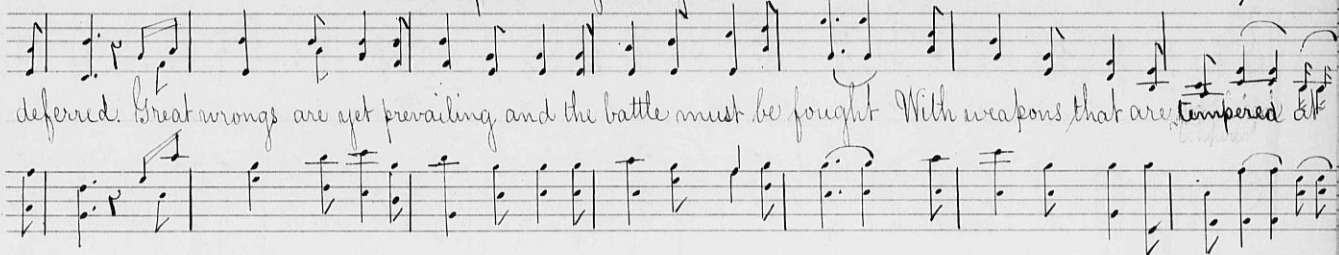 deferred. Great wrongs are yet prevailing and the battle must be fought With weapons that are tempered at